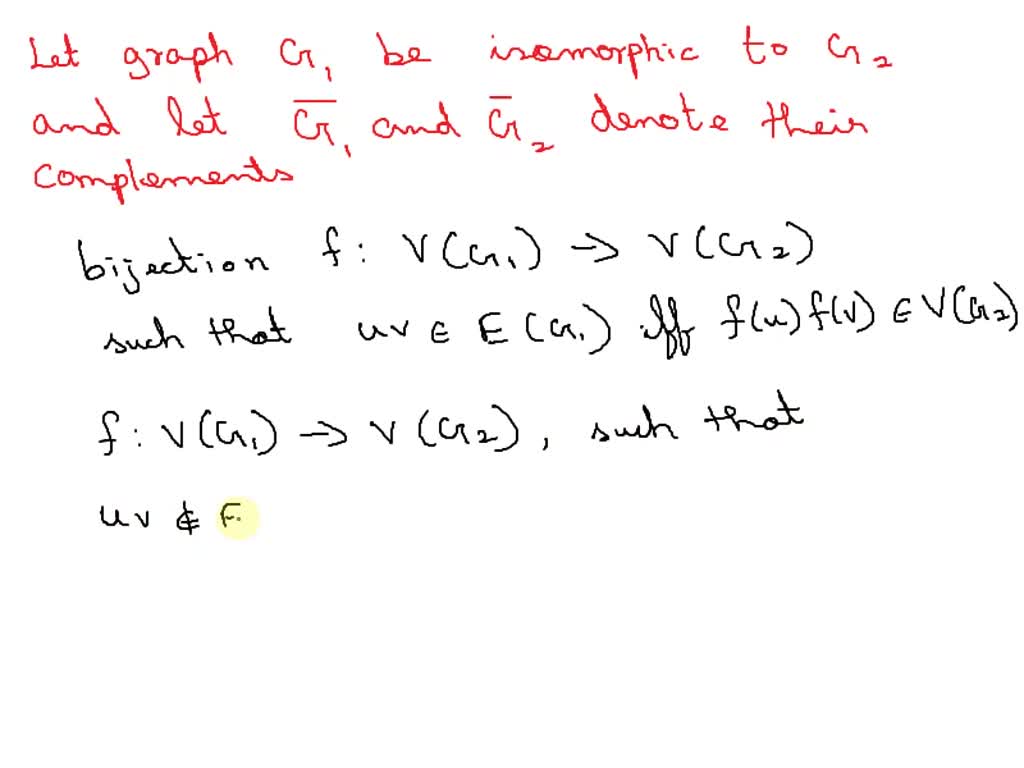 Let graph G₁ be isomorphic to G₂
and let G̅₁ and G̅₂ denote their
complements
bijection f: V(G₁) → V(G₂)
such that uv ∈ E(G₁) iff f(u)f(v) ∈ V(G₂)
f: V(G₁) → V(G₂), such that
uv ∉ E